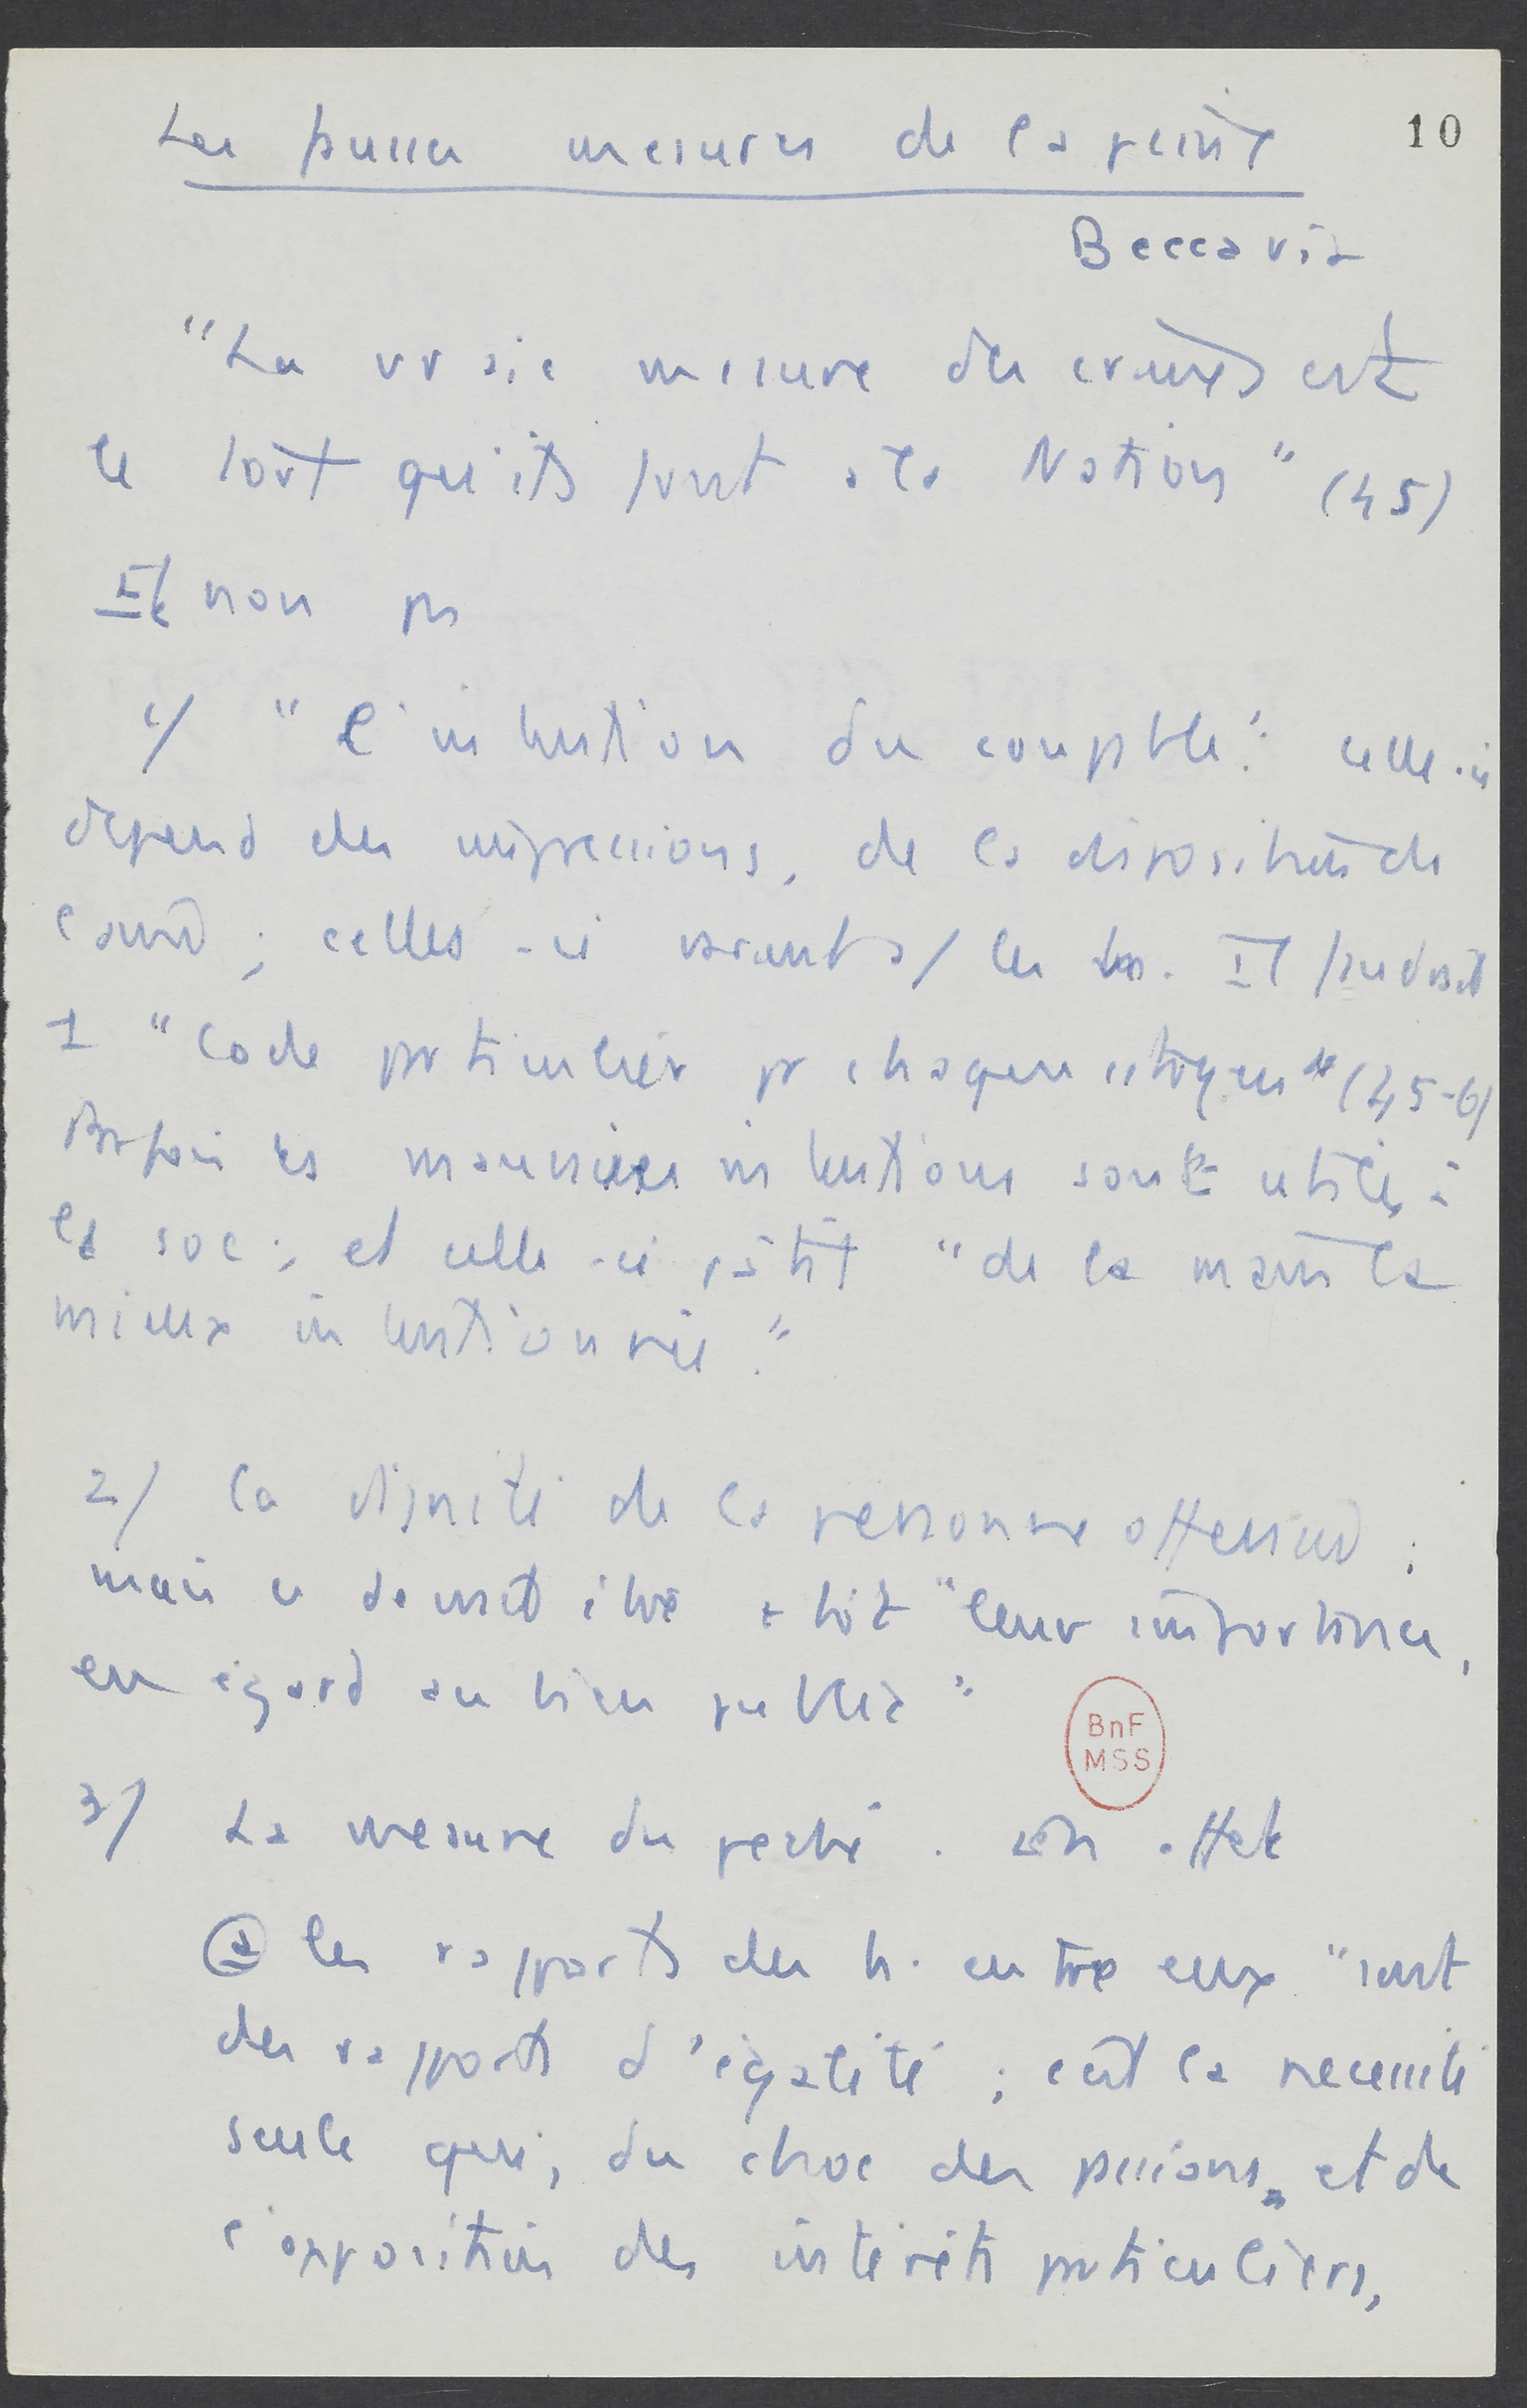 Les fausses mesures de la peine
10
Beccaria
"La vraie mesure des crimes est
le tort qu'ils font à la Nation" (45)
Et non pas
1/ "l'intention du coupable": celle-ci
dépend des impressions, de la disposition de
l'âme ; celles-ci varient av les h. Il faudrait
1 "Code particulier pr chaque citoyen" (45-6)
Parfois les mauvaises intentions sont utiles à
la soc ; et celle-ci pâtit "de la main la
mieux intentionnée."
2/ la dignité de la personne offensée ;
mais ce devrait être "leur importance,
eu égard au bien public"
BnF
MSS
3/ La mesure du péché. En effet
(a) les rapports des h. entre eux "sont
des rapports d'égalité ; c'est la nécessité
seule qui, du choc des passions et de
l'opposition des intérêts particuliers,